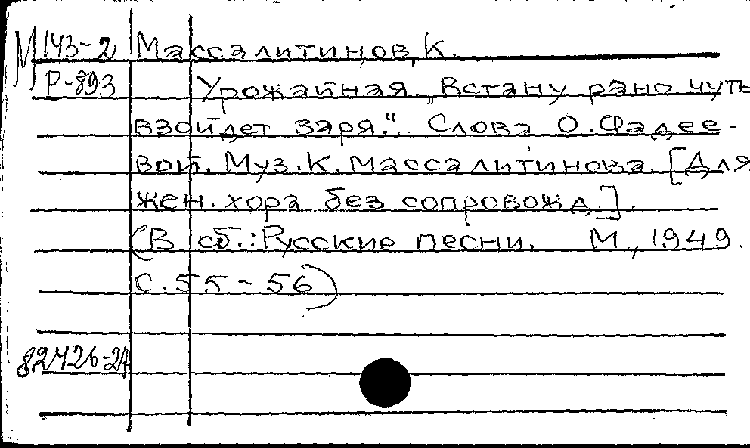 М 143-2 Массалитинов, К.
Р-893 Урожайная. „Встану рано чуть
взойдет заря." Слова О. Фадее-
вой. Муз. К. Массалитинова. [Для
жен. хора без сопровожд.].
(В сб.: Русские песни. М., 1949.
С. 55-56)
82426-24